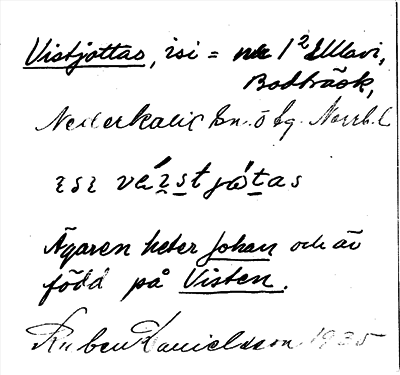 Vistjottas, isi = 1² Ullavi,
Bodträsk,
Nederkalix sn. o. sg. Norrb. l
isi vä́istjǻtas
Ägaren heter Johan och är
född på Visten.
Ruben Danielsson 1935